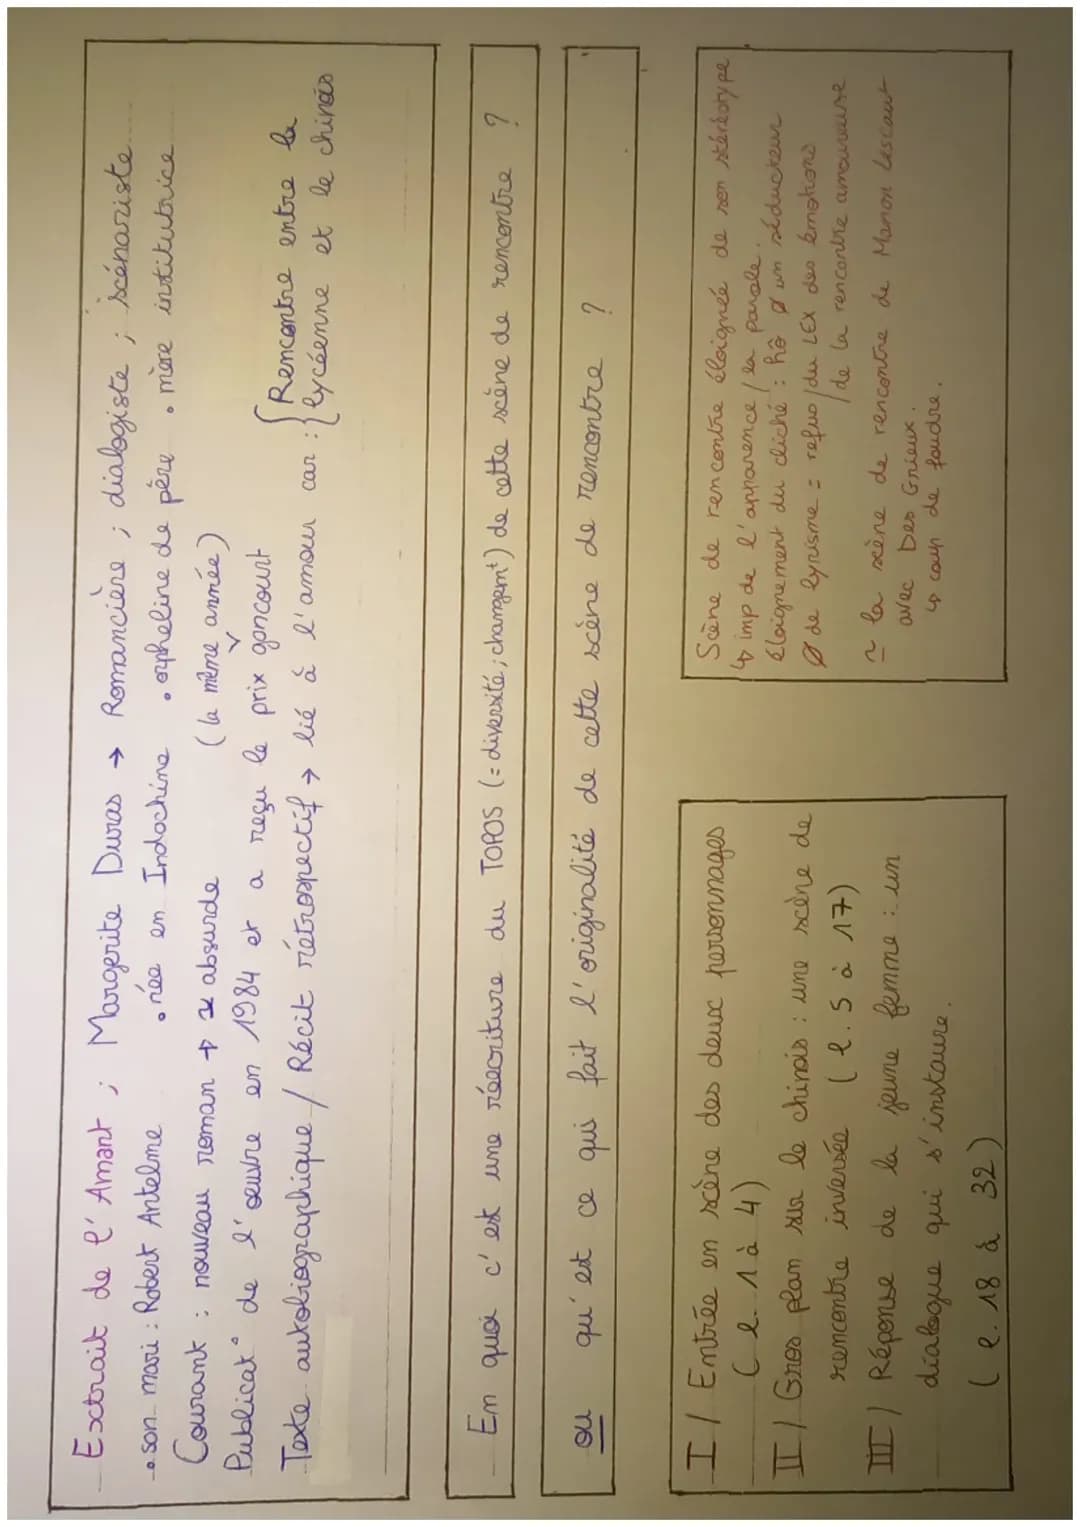 Extrait de l'Amant ; Margerite Duras → Romancière ; dialogiste ; scénariste
• son mari : Robert Antelme • née en Indochine • orpheline de père • mère institutrice
Courant : nouveau roman → absurde (la même année)
Publicat° de l'œuvre en 1984 et a reçu le prix goncourt
Texte autobiographique / Récit rétrospectif → lié à l'amour car : { Rencontre entre la
lycéenne et le chinois
En quoi c'est une réécriture du TOPOS (= diversité ; changemt) de cette scène de rencontre ?
ou qu'est ce qui fait l'originalité de cette scène de rencontre ?
I / Entrée en scène des deux personnages
(l. 1 à 4)
II / Gros plan sur le chinois : une scène de
rencontre inversée (l. 5 à 17)
III / Réponse de la jeune femme : un
dialogue qui s'instaure.
(l. 18 à 32)
Scène de rencontre éloignée de son stéréotype
↳ imp de l'apparence / la parole.
éloignement du cliché : hô ø un séducteur
Ø de lyrisme = refus / du LEX des émotions
/ de la rencontre amoureuse
≃ la scène de rencontre de Manon Lescaut
avec Des Grieux.
↳ coup de foudre.